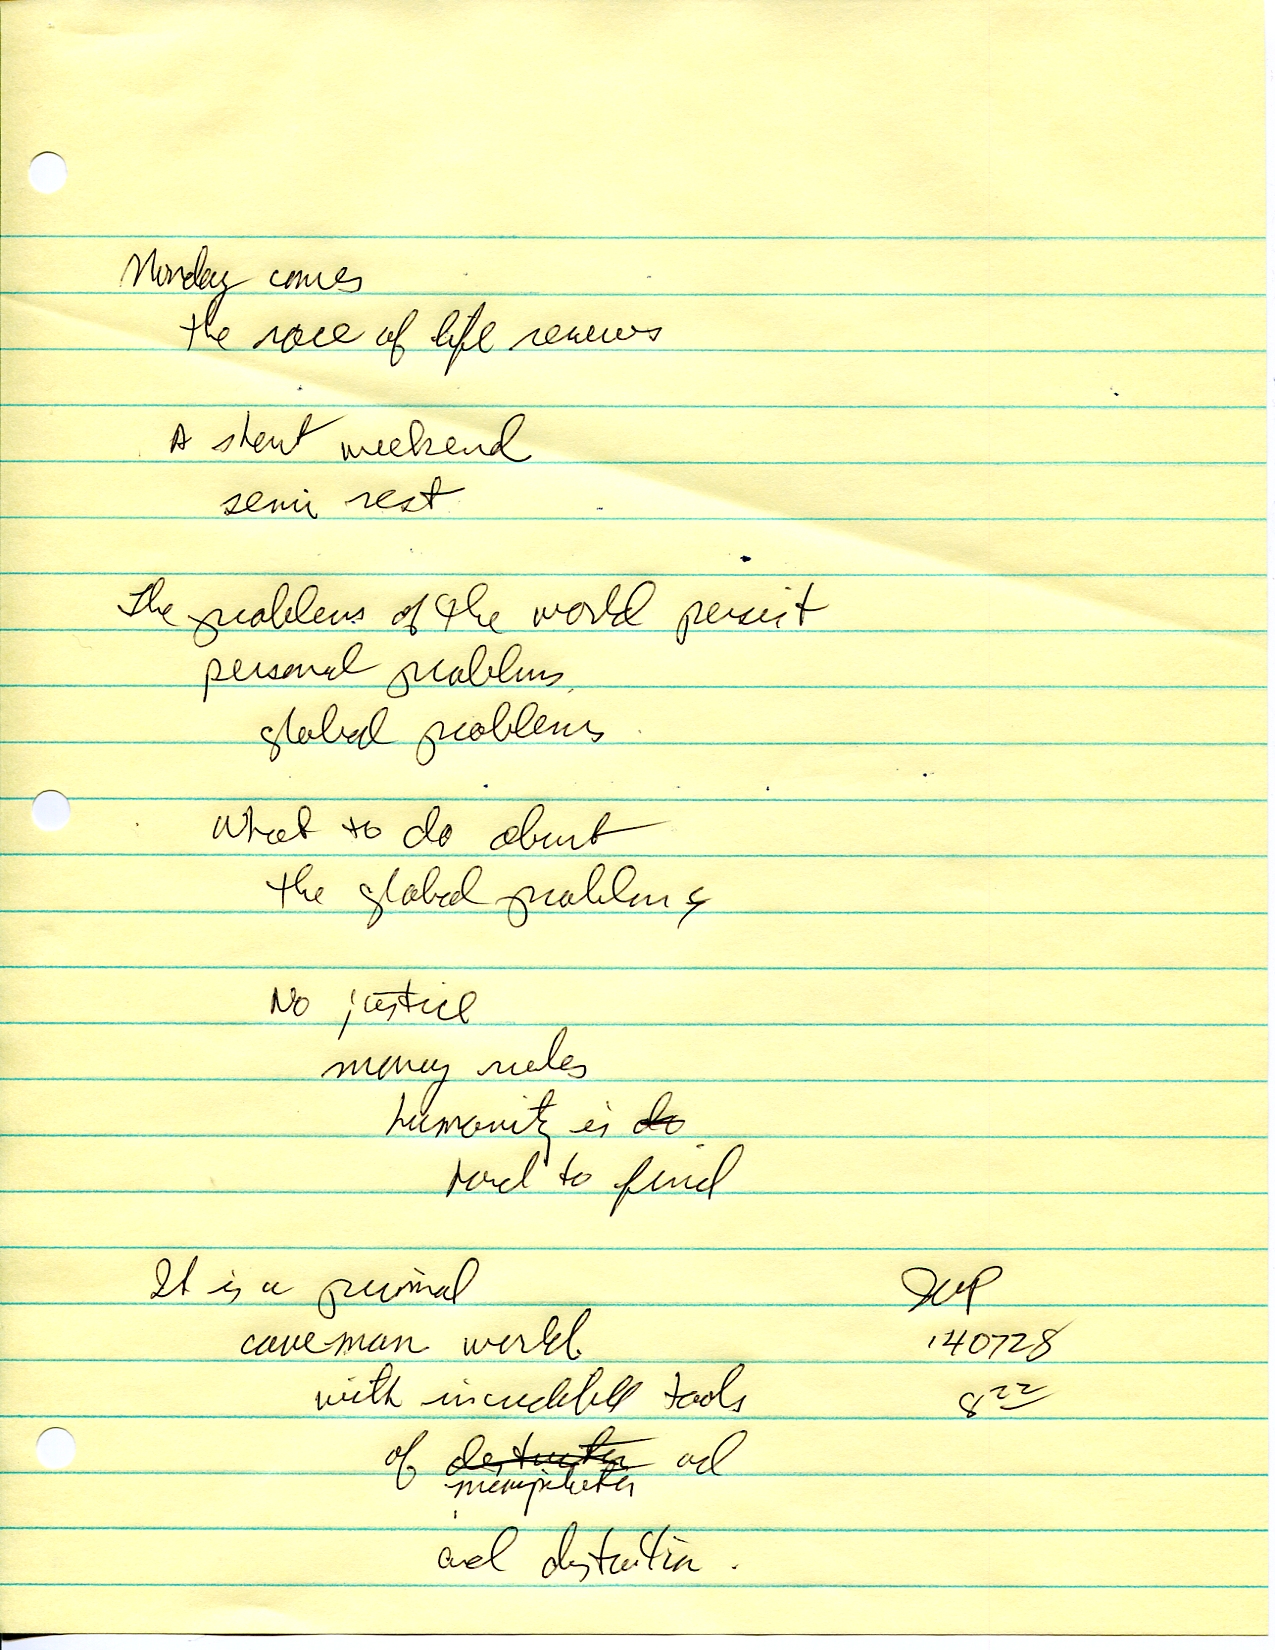 Monday comes
the race of life renews
A short weekend
semi rest
The problems of the world persist
personal problems
global problems
What to do about
the global problems
No justice
money rules
humanity is do
hard to find
It is a primal
caveman world
with incredible tools
of destruction and
manipulation
and destruction.
140728
8 22